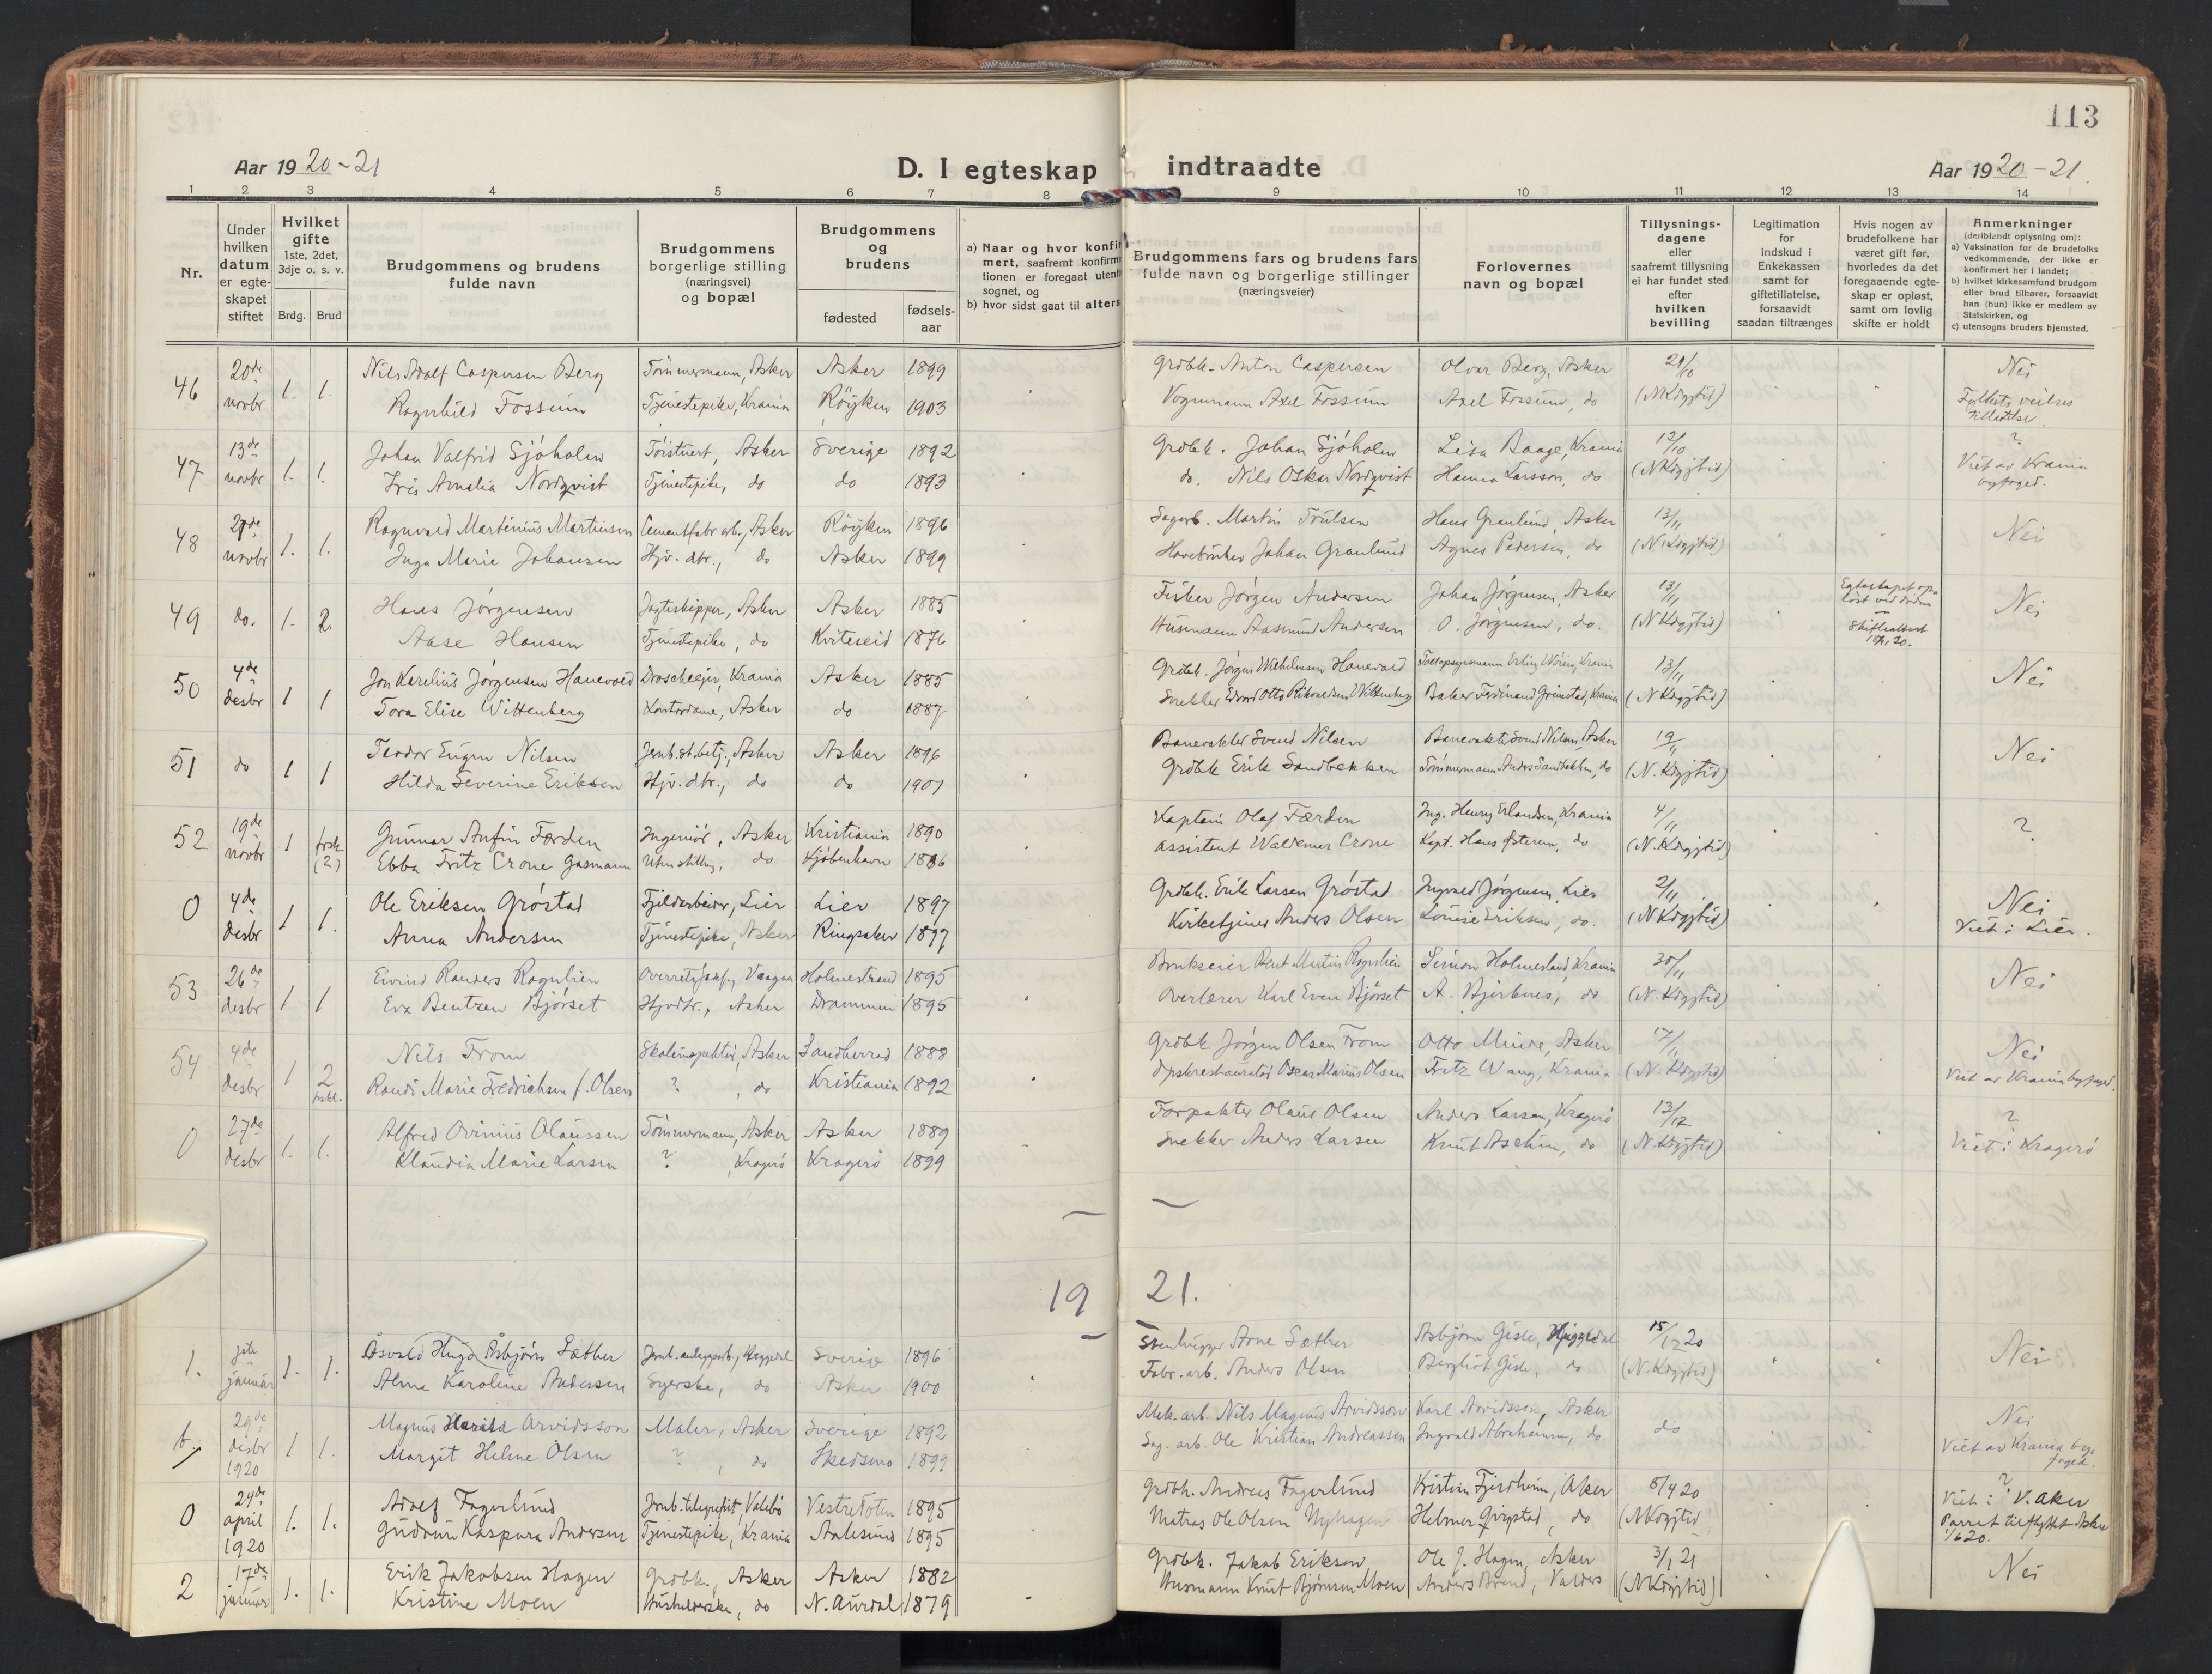 113
Aar 1920-21
D. I egteskap indtraadte
Aar 1920-21.
1 2 3 4 5 6 7 8 9 10 11 12 13 14
Nr.
Under
hvilken
datum
er egte-
skapet
stiftet
Hvilket
gifte
1ste, 2det,
3dje o. s. v.
Brdg. Brud
Brudgommens og brudens
fulde navn
Brudgommens
borgerlige stilling
(næringsvei)
og bopæl
Brudgommens
og
brudens
fødested
fødsels-
aar
a) Naar og hvor konfir
mert, saafremt konfirma
tionen er foregaat utenfor
sognet, og
b) hvor sidst gaat til alters
Brudgommens fars og brudens fars
fulde navn og borgerlige stillinger
(næringsveier)
Forlovernes
navn og bopæl
Tillysnings-
dagene
eller
saafremt tillysning
ei har fundet sted
efter
hvilken
bevilling
Legitimation
for
indskud i
Enkekassen
samt for
giftetillatelse,
forsaavidt
saadan tiltrænges
Hvis nogen av
brudefolkene har
været gift før,
hvorledes da det
foregaaende egte-
skap er opløst,
samt om lovlig
skifte er holdt
Anmerkninger
(deriblandt oplysning om):
a) Vaksination for de brudefolks
vedkommende, der ikke er
konfirmert her i landet;
b) hvilket kirkesamfund brudgom
eller brud tilhører, forsaavidt
han (hun) ikke er medlem av
Statskirken, og
c) utensogns bruders hjemsted.
46 20de novbr 1. 1. Nils Adolf Caspersen Berg Tømmermann, Asker Asker 1899 Grdbk. Anton Caspersen Olvar Berg, Asker 29/10 Nei
Ragnhild Fossum Tjenestepike, Krania Röyken 1903 Vognmann Axel Fossum Axel Fossum, do (N Kdgjtid) Fylkets veilses tillatelse
47 13de novbr 1. 1. Johan Valfrid Sjöholm Asker Sverige 1892 Grdbk. Johan Sjöholm Lisa Baage, Krania 12/10 ?
Iris Amalia Nordqvist Tjenestepike, do do 1893 do. Nils Oskar Nordqvist Hanna Larsson, do (N Kdgjtid) Viet av Krania byfoged.
48 27de novbr 1. 1. Ragnvald Martinius Martinsen Cementfabr arb., Asker Röyken 1896 Sagarb. Martin Trulsen Hans Granlund, Asker 13/11 Nei
Inga Marie Johansen Hjv. dtr., do Asker 1899 Havebruker Johan Granlund Agnes Pedersen, do (N Kdgjtid)
49 do. 1. 2. Hans Jørgensen Jagteskipper, Asker Asker 1885 Fisker Jørgen Andersen Johan Jørgensen, Asker 13/11 Egteskapet op-
løst ved døden Nei
Aase Hansen Tjenestepike, do Kviteseid 1876 Husmann Aasmund Andersen O. Jørgensen, do. (N Kdgjtid) Skifteattest
50 4de desbr 1 1 Jon Karelius Jørgensen Hanevold Droscheeier, Krania Asker 1885 Grdbk. Jørgen Wilhelmsen Hanevold 13/11 Nei
Tora Elise Wittenberg Kontordame, Asker do 1887 Snekker Edvard Otto Wittenberg Baker Ferdinand Grimstad, Krania (N Kdgjtid)
51 do 1 1 Teodor Eugen Nilsen Jernb.st.betj., Asker Asker 1896 Banevakter Svend Nilsen Banevakter Svend Nilsen, Asker 19/11 Nei
Hilda Severine Eriksen Hjv. dtr., do do 1901 Grdbk Erik Sandbekken Tømmermann Anders Sandbekken, do (N. Kdgjtid)
52 19de novbr 1 frsk (2) Gunnar Anfin Færden Ingeniør, Asker Kristiania 1890 Kaptein Olaf Færden Ing. Henry Erlandsen, Krania 4/11 ?
Ebba Fritz Crone Gasmann Uten stilling, do Kjøbenhavn 1886 Assistent Waldemar Crone Kapt. Hans Østerem, do (N. Kdgjtid)
0 4de desbr 1 1. Ole Eriksen Gröstad Fjeldarbeider, Lier Lier 1897 Grdbk. Erik Larsen Gröstad Ingvald Jørgensen, Lier 2/11 Nei
Anna Andersen Tjenestepike, Asker Ringsaker 1897 Kirketjener Anders Olsen Louise Eriksen, do. (N Kdgjtid) Viet i Lier.
53 26de desbr 1 1 Eivind Randers Rognlien Overretssakf., Vaagaa Holmestrand 1895 Brukseier Bent Martin Rognlien Simon Holmesland, Krania 30/11 Nei
Eva Bentzen Bjørset Hjvdtr., Asker Drammen 1895 Overlærer Karl Even Bjørset A. Bjerknes, do (N. Kdgjtid)
54 4de desbr 1 2 frskl. Nils Trom Skoleinspektør, Asker Sandherred 1888 Grdbk Jørgen Olsen Trom Otto Minde, Asker 17/11 Nei
Randi Marie Fredrichsen f. Olsen ? , do Kristiania 1892 Dpskrestauratør Oscar Marius Olsen Fritz Wang, Krania (N. Kdgjtid) Viet av Krania byfoged.
0 27de desbr 1. 1. Alfred Ovinius Olaussen Tømmermann, Asker Asker 1889 Forpakter Olaus Olsen Anders Larsen, Kragerö 13/12 ?
Klaudia Marie Larsen ? , Kragerö Kragerö 1899 Snekker Anders Larsen Knut Aschim, do (N. Kdgjtid) Viet i Kragerö
19 21.
1. januar 1. 1. Åsvald Hugo Åsbjørn Sæther Jernb.anlegsarb., Heggedal Sverige 1896 Stenhugger Arne Sæther Asbjørn Gisle, Heggedal 15/12 20 Nei
Alma Karoline Andersen Syerske, do Asker 1900 Fabr.arb. Anders Olsen Bergliot Gisle, do (N. Kdgjtid)
29de desbr 1920 1 1. Magnus Harald Arvidsson Maler, Asker Sverige 1892 Mek. arb. Nils Magnus Arvidsson Karl Arvidsson, Asker do Nei
Margit Helene Olsen ? , do Skedsmo 1899 Sag. arb. Ole Kristian Andreassen Ingvald Abrahamsen, do Viet av Krania by-
foged.
0 24de april 1920 1. 1. Adolf Fagerlund Jernb.telegrafist, Valebö Vestre Toten 1895 Grdbk. Andreas Fagerlund Kristian Fjeldheim, Aker 8/4 20 ? Viet i V. Aker
Gudrun Kaspara Andersen Tjenestepike, Krania Aalesund 1895 Matros Ole Olsen Nyhagen Helmer Qvigstad, do (N Kdgjtid Parret tilflyttet Asker
1/6 20.
2 17de januar 1. 1. Erik Jakobsen Hagen Grdbk., Asker Asker 1882 Grdbk. Jakob Eriksen Ole J. Hagen, Asker 3/1 21 Nei
Kristine Moen Husholderske, do N. Aurdal 1879 Husmann Knut Bjørnsen Moen Anders Brend, Valders (N Kdgjtid)